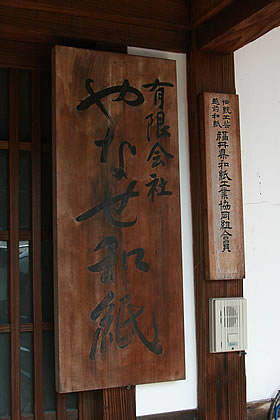 有限会社
やなせ和紙
伝統工芸
越前和紙
福井県和紙工業協同組合員